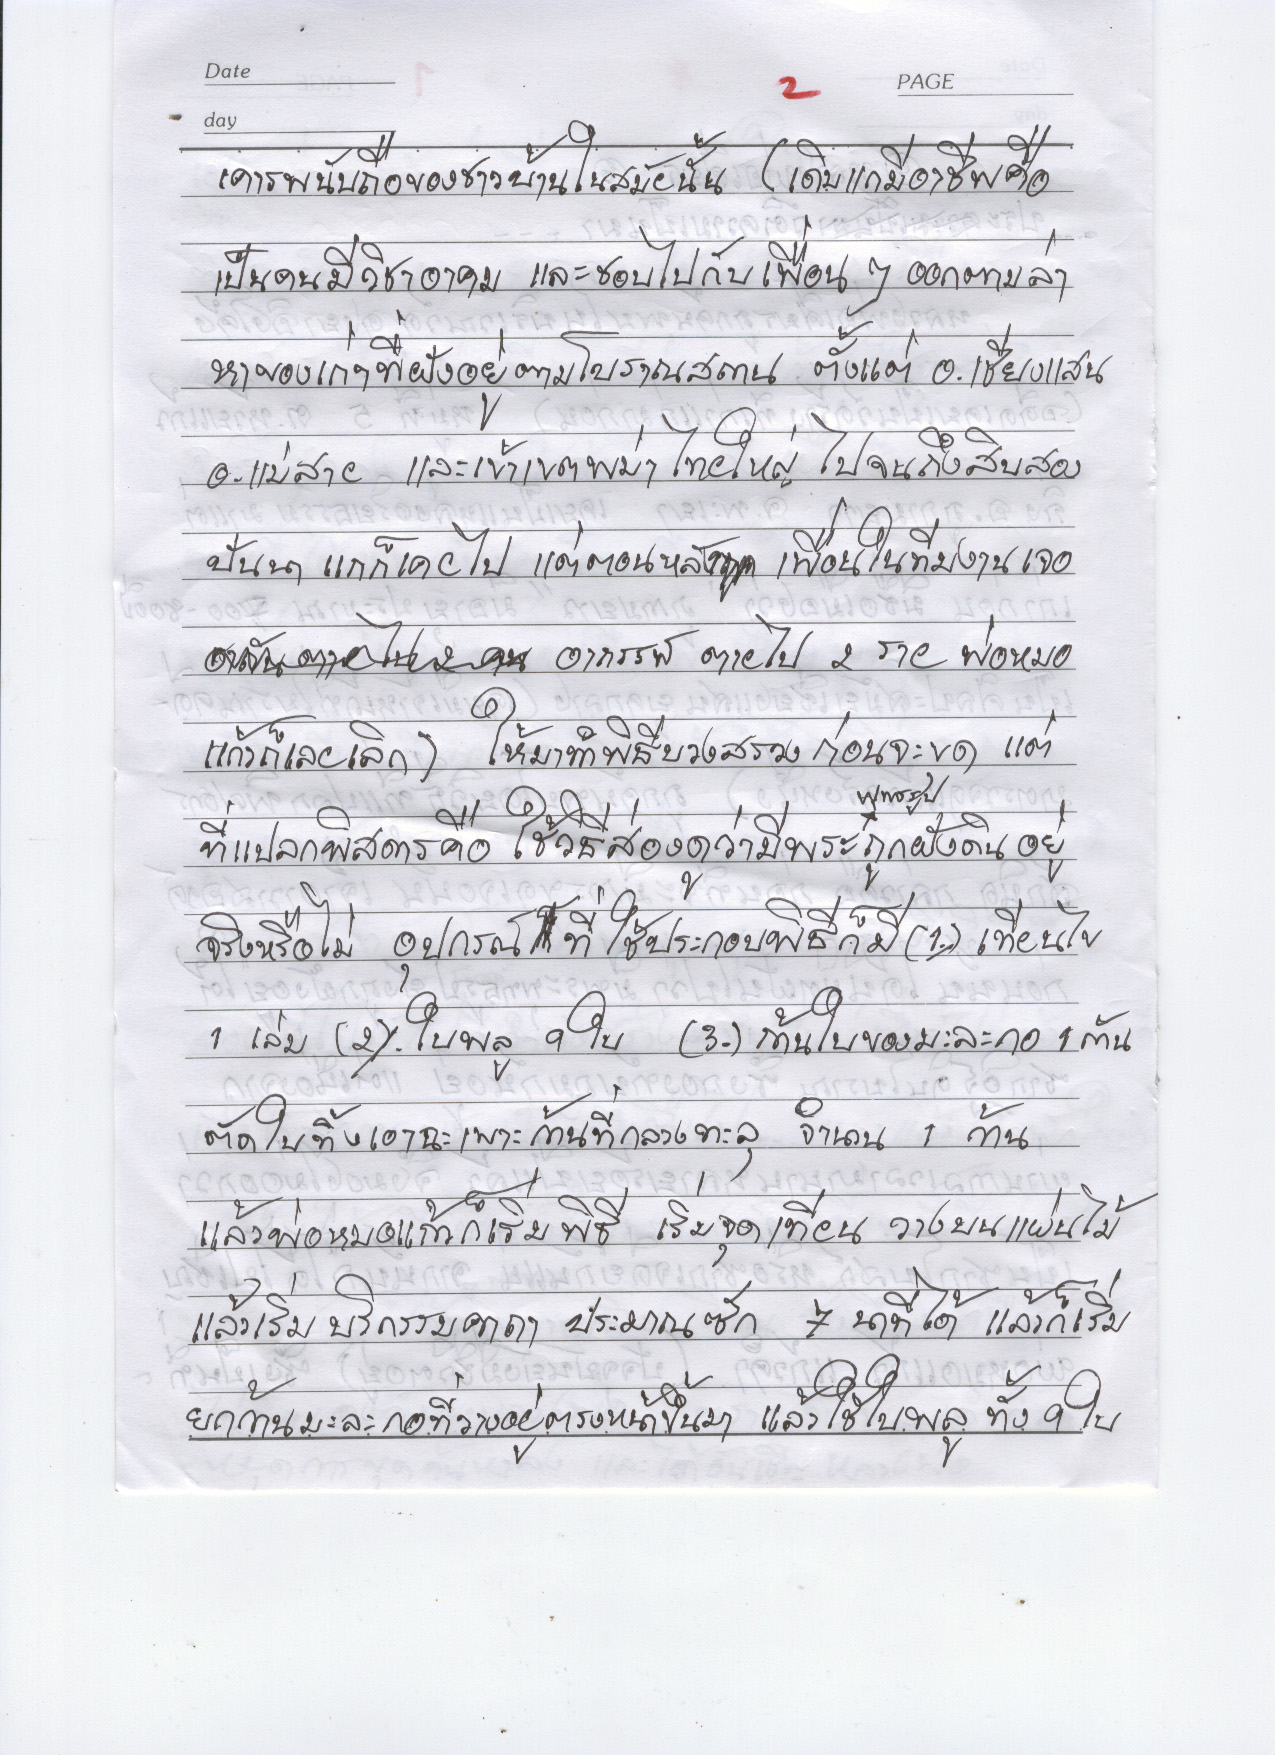 Date
2
PAGE
day
เคารพนับถือของชาวบ้านในสมัยนั้น (เดิมแกมีอาชีพคือ
เป็นคนมีวิชาอาคม และชอบไปกับเพื่อน ๆ ออกตามล่า
หาของเก่าๆที่ฝังอยู่ตามโบราณสถาน ตั้งแต่ อ.เชียงแสน
อ.แม่สาย และเข้าเขตพม่า ไทยใหญ่ ไปจนถึงสิบสอง
ปันนา แกก็เคยไป แต่ตอนหลัง เพื่อนในทีมงานเจอ
อาถรรพ์ ตายไป 2 ราย พ่อหมอ
แก้วก็เลยเลิก) ให้มาทำพิธีบวงสรวง ก่อนจะขุด แต่
พุทธรูป
ที่แปลกพิสดารคือ ใช้วิธีส่องดูว่ามีพระถูกฝังดินอยู่
จริงหรือไม่ อุปกรณ์ ที่ใช้ประกอบพิธีก็มี (1.) เทียนไข
1 เล่ม (2). ใบพลู 9 ใบ (3.) ก้านใบของมะละกอ 1 ก้าน
ตัดใบทิ้งเอาฉะเพาะก้านที่กลวงทะลุ จำนวน 1 ก้าน
แล้วพ่อหมอแก้วก็เริ่มพิธี เริ่มจุดเทียน วางบนแผ่นไม้
แล้วเริ่มบริกรรมคาถา ประมาณซัก 7 นาทีได้ แล้วก็เริ่ม
ยกก้านมะละกอที่วางอยู่ตรงหน้าขึ้นมา แล้วใช้ใบพลู ทั้ง 9 ใบ